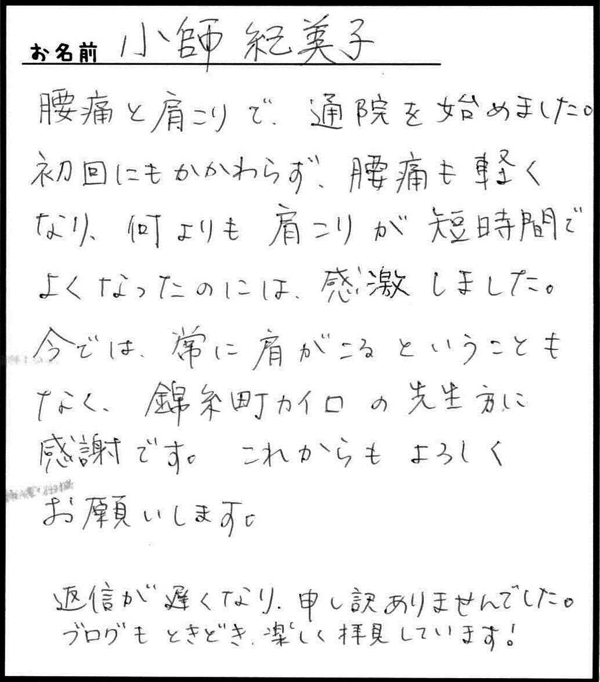 お名前 小師 紀美子
腰痛と肩こりで、通院を始めました。
初回にもかかわらず、腰痛も軽く
なり、何よりも肩こりが短時間で
よくなったのには、感激しました。
今では、常に肩がこるということも
なく、錦糸町カイロの先生方に
感謝です。これからもよろしく
お願いします。
返信が遅くなり、申し訳ありませんでした。
ブログもときどき、楽しく拝見しています!